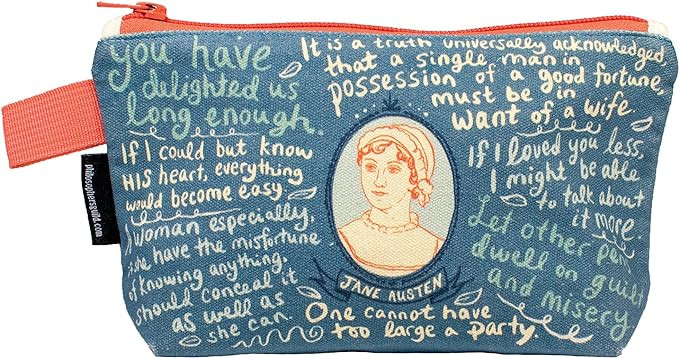 you have
delighted us
long enough.
It is a truth universally acknowledged,
that a single man in
possession of a good fortune,
must be in
want of a wife.
If I could but know
HIS heart, everything
would become easy
A woman especially,
if she have the misfortune
of knowing anything,
should conceal it
as well as
she can.
JANE AUSTEN
If I loved you less,
I might be able
to talk about
it more.
Let other pens
dwell on guilt
and misery
One cannot have
too large a party.
philosophersguild.com